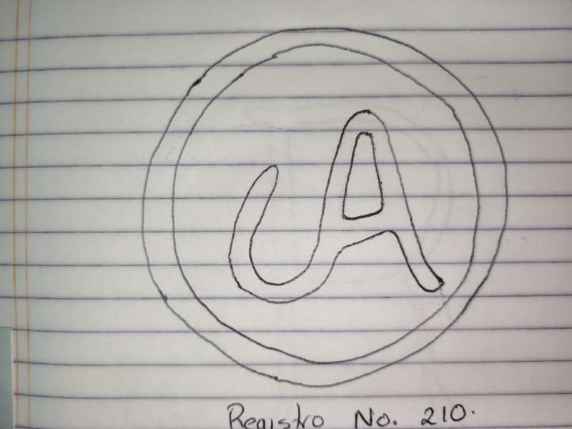 A
Registro No. 210.